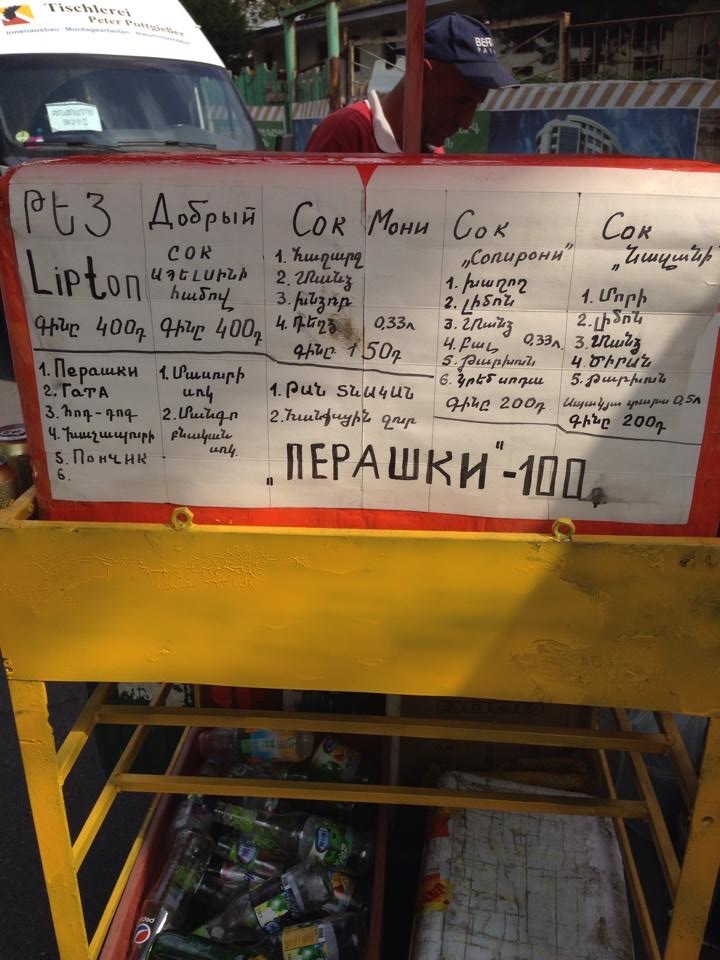 Tischlerei
Peter Pottgießer
Innenausbau · Montagearbeiten
BER
ԹԵՅ
Lipton
Գինը 400դ
Добрый
СОК
ԱՊԵԼՍԻՆԻ
համով
Գինը 400դ
Сок Мони
1. Խաղող
2. Մանգ
3. խնձոր
4. Դեղձ 0,33л
Գինը 150դ
Сок
„Сопирони"
1. խաղող
2. Լիմոն
3. Մանգ
4. Բալ 0,33л
5. Թարխուն
6. կրեմ սոդա
Գինը 200դ
Сок
„Նատախտ
1. Մորի
2. Լիմոն
3. Մանգ
4. Ծիրան
5. Թարխուն
Ապակյա տարա 0,5л
Գինը 200դ
1. Перашки
2. Гата
3. Հոդ-դոգ
4. Խաչապուրի
5. Пончик
6.
1. Մասուրի
սոկ
2. Մանգո
բնական
սոկ
1. ԹԱՆ ՏՆԱԿԱՆ
2. Հանքային ջուր
„ПЕРАШКИ"-100
pepsi